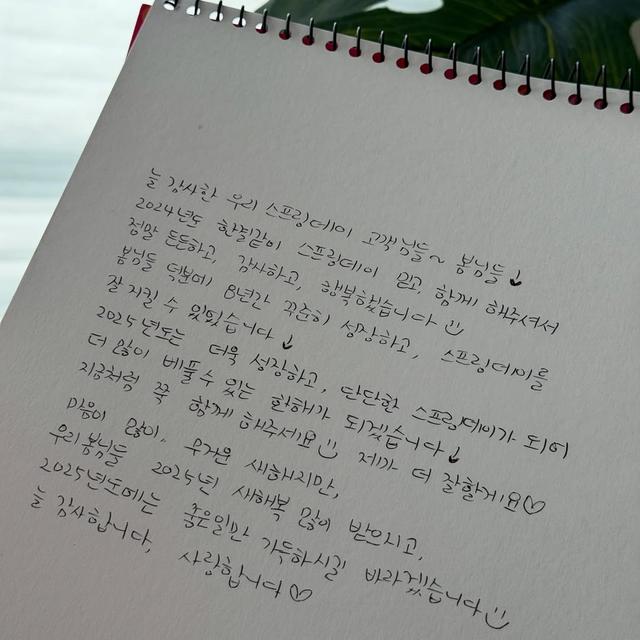 늘 감사한 우리 스프링데이 고객님들~ 봄님들↓
2024년도 한결같이 스프링데이 믿고, 함께 해주셔서
정말 든든하고, 감사하고, 행복했습니다 :)
봄님들 덕분에 8년간 꾸준히 성장하고, 스프링데이를
잘 지킬 수 있었습니다↓
2025년도는 더욱 성장하고, 단단한 스프링데이가 되어
더 많이 베풀 수 있는 한해가 되겠습니다↓
지금처럼 쭉 함께 해주세요 :) 제가 더 잘할게요♡
마음이 많이, 무거운 새해지만,
우리 봄님들 2025년 새해복 많이 받으시고,
2025년도에는 좋은일만 가득하시길 바라겠습니다 :)
늘 감사합니다, 사랑합니다♡